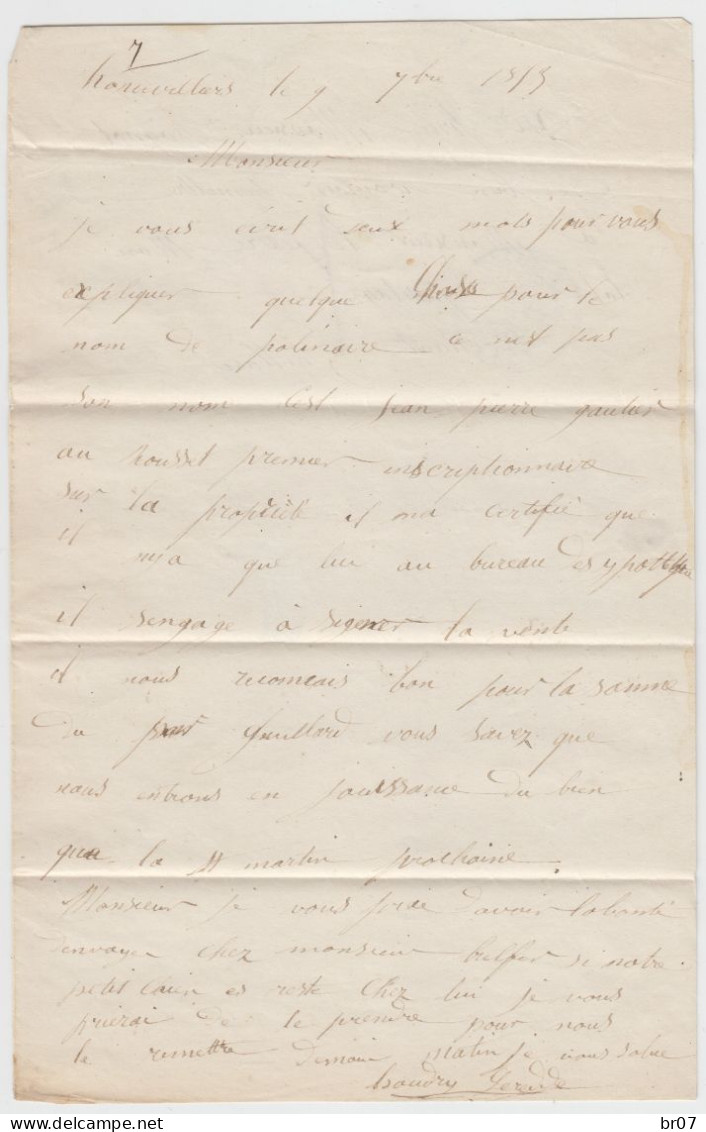 7
le 9 7bre
Monsieur
je vous écrit deux mots pour vous
expliquer quelque Chose pour le
nom de polinaire ce nest pas
son nom cest jean pierre gautier
au housset premier inscriptionnaire
sur la propriété il ma certifié que
il nia que lui au bureau des ypotheque
il sengage à signer la vente
il nous reconnais bon pour la somme
du vous savez que
nous entrons en jouissance du bien
qua la St martin prochaine
Monsieur je vous prie davoir la bonté
denvoyer chez monsieur si notre
petit es resté Chez lui je vous
prierai de le prendre pour nous
le remettre demain matin je vous salue